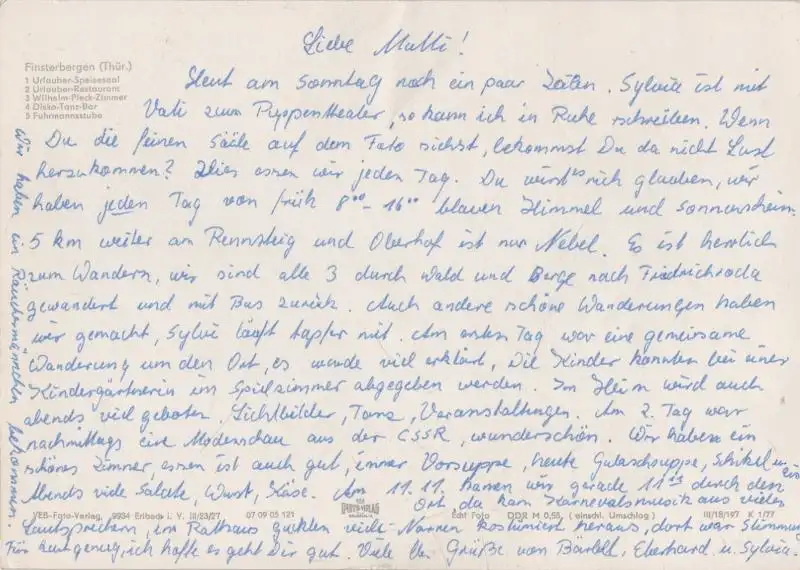 Liebe Mutti!
Finsterbergen (Thür.)
1 Urlauber-Speisesaal
2 Urlauber-Restaurant
3 Wilhelm-Pieck-Zimmer
4 Disko-Tanz-Bar
5 Fuhrmannsstube
Heut am Sonntag noch ein paar Zeilen. Sylvia ist mit
Vati zum Puppentheater, so kann ich in Ruhe schreiben. Wenn
Du die feinen Säle auf dem Foto siehst, bekommst Du da nicht Lust
herzukommen? Hier essen wir jeden Tag. Du wirst es nich glauben, wir
haben jeden Tag von früh 8⁰⁰ - 16⁰⁰ blauen Himmel und Sonnenschein.
5 km weiter am Rennsteig und Oberhof ist nur Nebel. Es ist herrlich
zum Wandern, wir sind alle 3 durch Wald und Berge nach Friedrichroda
gewandert und mit Bus zurück. Auch andere schöne Wanderungen haben
wir gemacht, Sylvi läuft tapfer mit. Am ersten Tag war eine gemeinsame
Wanderung um den Ort, es wurde viel erklärt, die Kinder konnten bei einer
Kindergärtnerin im Spielzimmer abgegeben werden. Im Heim wird auch
abends viel geboten. Lichtbilder, Tanz, Veranstaltungen. Am 2. Tag war
nachmittags eine Modenschau aus der CSSR, wunderschön. Wir haben ein
schönes Zimmer, essen ist auch gut, immer Vorsuppe, heute Gulaschsuppe,
Abends viele Salate, Wurst, Käse. Am 11.11. kamen wir gerade 11¹¹ durch den
Ort, da kam Karnevalsmusik aus vielen
VEB-Foto-Verlag, 9934 Erlbach i. V. III/23/27 07 09 05 121 Echt Foto DDR M 0,55 (einschl. Umschlag) III/18/197 K 1/77
Lautsprechern, im Rathaus guckten viele Narren kostümiert heraus, dort war Stimmung
Für heut genug, ich hoffe es geht Dir gut. Viele lb. Grüße von Bärbel, Eberhard u. Sylvia.
Wir haben ein Räuchermännchen bekommen.